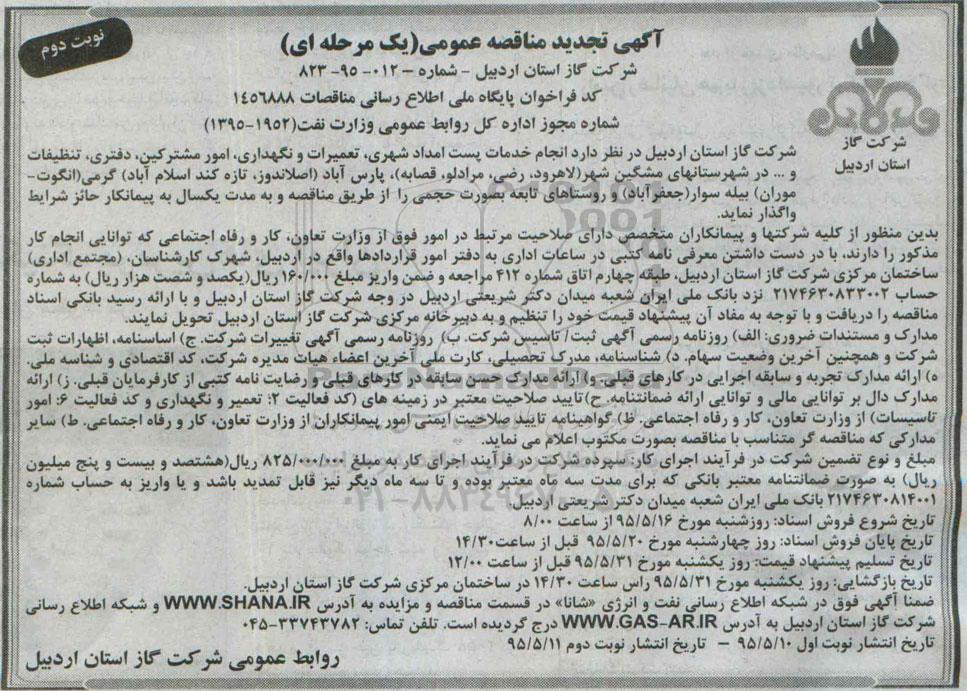 نوبت دوم
آگهی تجدید مناقصه عمومی(یک مرحله ای)
شرکت گاز استان اردبیل - شماره - ۰۱۲- ۹۵- ۸۲۳
کد فراخوان پایگاه ملی اطلاع رسانی مناقصات ۱۴۵۶۸۸۸
شماره مجوز اداره کل روابط عمومی وزارت نفت(۱۹۵۲-۱۳۹۵)
شرکت گاز
استان اردبیل
شرکت گاز استان اردبیل در نظر دارد انجام خدمات پست امداد شهری، تعمیرات و نگهداری، امور مشترکین، دفتری، تنظیفات
و ... در شهرستانهای مشگین شهر(لاهرود، رضی، مرادلو، قصابه)، پارس آباد (اصلاندوز، تازه کند اسلام آباد) گرمی(انگوت-
موران) بیله سوار(جعفرآباد) و روستاهای تابعه بصورت حجمی را از طریق مناقصه و به مدت یکسال به پیمانکار حائز شرایط
واگذار نماید.
بدین منظور از کلیه شرکتها و پیمانکاران متخصص دارای صلاحیت مرتبط در امور فوق از وزارت تعاون، کار و رفاه اجتماعی که توانایی انجام کار
مذکور را دارند، با در دست داشتن معرفی نامه کتبی در ساعات اداری به دفتر امور قراردادها واقع در اردبیل، شهرک کارشناسان، (مجتمع اداری)
ساختمان مرکزی شرکت گاز استان اردبیل، طبقه چهارم اتاق شماره ۴۱۲ مراجعه و ضمن واریز مبلغ ۱۶۰/۰۰۰ریال(یکصد و شصت هزار ریال) به شماره
حساب ۲۱۷۴۶۳۰۸۳۳۰۰۲ نزد بانک ملی ایران شعبه میدان دکتر شریعتی اردبیل در وجه شرکت گاز استان اردبیل و با ارائه رسید بانکی اسناد
مناقصه را دریافت و با توجه به مفاد آن پیشنهاد قیمت خود را تنظیم و به دبیرخانه مرکزی شرکت گاز استان اردبیل تحویل نمایند.
مدارک و مستندات ضروری: الف) روزنامه رسمی آگهی ثبت/ تاسیس شرکت. ب) روزنامه رسمی آگهی تغییرات شرکت. ج) اساسنامه، اظهارات ثبت
شرکت و همچنین آخرین وضعیت سهام. د) شناسنامه، مدرک تحصیلی، کارت ملی آخرین اعضاء هیات مدیره شرکت، کد اقتصادی و شناسه ملی.
ه) ارائه مدارک تجربه و سابقه اجرایی در کارهای قبلی. و) ارائه مدارک حسن سابقه در کارهای قبلی و رضایت نامه کتبی از کارفرمایان قبلی. ز) ارائه
مدارک دال بر توانایی مالی و توانایی ارائه ضمانتنامه. ح) تایید صلاحیت معتبر در زمینه های (کد فعالیت ۲: تعمیر و نگهداری و کد فعالیت ۶: امور
تاسیسات) از وزارت تعاون، کار و رفاه اجتماعی. ظ) گواهینامه تایید صلاحیت ایمنی امور پیمانکاران از وزارت تعاون، کار و رفاه اجتماعی. ط) سایر
مدارکی که مناقصه گر متناسب با مناقصه بصورت مکتوب اعلام می نماید.
مبلغ و نوع تضمین شرکت در فرآیند اجرای کار: سپرده شرکت در فرآیند اجرای کار به مبلغ ۸۲۵/۰۰۰/۰۰۰ ریال(هشتصد و بیست و پنج میلیون
ریال) به صورت ضمانتنامه معتبر بانکی که برای مدت سه ماه معتبر بوده و تا سه ماه دیگر نیز قابل تمدید باشد و یا واریز به حساب شماره
۲۱۷۴۶۳۰۸۱۴۰۰۱ بانک ملی ایران شعبه میدان دکتر شریعتی اردبیل.
تاریخ شروع فروش اسناد: روزشنبه مورخ ۹۵/۵/۱۶ از ساعت ۸/۰۰
تاریخ پایان فروش اسناد: روز چهارشنبه مورخ ۹۵/۵/۲۰ قبل از ساعت۱۴/۳۰
تاریخ تسلیم پیشنهاد قیمت: روز یکشنبه مورخ ۹۵/۵/۳۱ قبل از ساعت ۱۲/۰۰
تاریخ بازگشایی: روز یکشنبه مورخ ۹۵/۵/۳۱ راس ساعت ۱۴/۳۰ در ساختمان مرکزی شرکت گاز استان اردبیل.
ضمنا آگهی فوق در شبکه اطلاع رسانی نفت و انرژی «شانا» در قسمت مناقصه و مزایده به آدرس WWW.SHANA.IR و شبکه اطلاع رسانی
شرکت گاز استان اردبیل به آدرس WWW.GAS-AR.IR درج گردیده است. تلفن تماس: ۳۳۷۴۳۷۸۲-۰۴۵
تاریخ انتشار نوبت اول ۹۵/۵/۱۰ - تاریخ انتشار نوبت دوم ۹۵/۵/۱۱
روابط عمومی شرکت گاز استان اردبیل